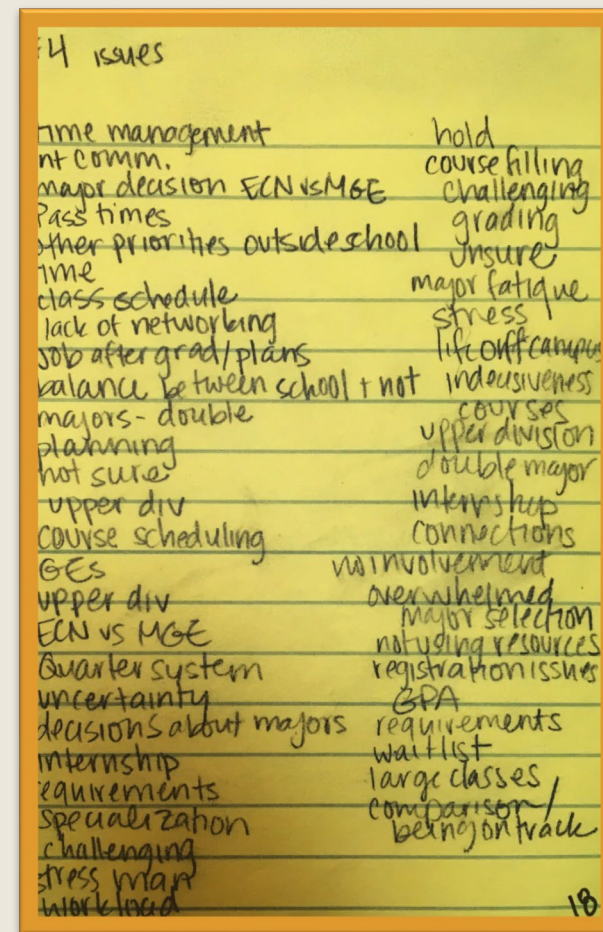 #4 issues
time management
nt comm.
major decision ECN vs MGE
Pass times
other priorities outside school
time
class schedule
lack of networking
job after grad/plans
balance between school + not
majors - double
planning
not sure
upper div
course scheduling
GEs
upper div
ECN vs MGE
Quarter system
uncertainty
decisions about majors
internship
requirements
specialization
challenging
stress man
workload
hold
course filling
challenging
grading
unsure
major fatigue
stress
life off campus
indecisiveness
courses
upper division
double major
internship
connections
no involvement
overwhelmed
major selection
not using resources
registration issues
GPA
requirements
waitlist
large classes
comparison/
being on track
18